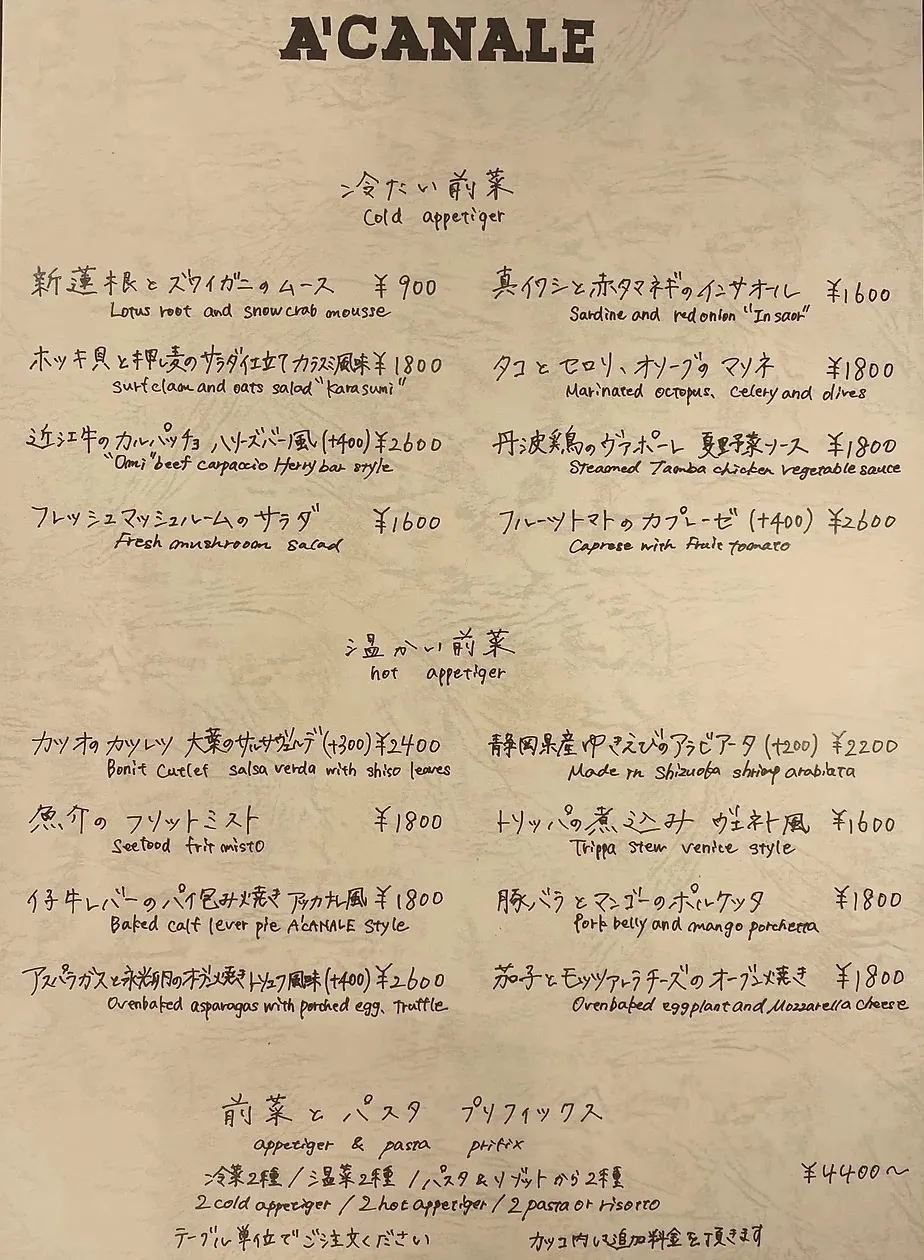 A'CANALE
冷たい前菜
Cold appetiger
新蓮根とズワイガニのムース ¥900
Lotus root and snowcrab mousse
真イワシと赤タマネギのインサオール ¥1600
Sardine and red onion "In saor"
ホッキ貝と押し麦のサラダ仕立てカラスミ風味 ¥1800
surfclam and oats salad "karasumi"
タコとセロリ、オリーブのマリネ ¥1800
Marinated octopus, celery and olives
近江牛のカルパッチョ ハリーズバー風(+400)¥2600
"Omi" beef carpaccio Herry bar style
丹波鶏のヴァポーレ 夏野菜ソース ¥1800
Steamed Tamba chicken vegetable sauce
フレッシュマッシュルームのサラダ ¥1600
Fresh mushroom salad
フルーツトマトのカプレーゼ(+400) ¥2600
Caprese with fruit tomato
温かい前菜
hot appetiger
カツオのカツレツ 大葉のサルサヴェルデ(+300)¥2400
Bonit Cutlet salsa verda with shiso leaves
静岡県産ゆきえびのアラビアータ(+200) ¥2200
Made in Shizuoka shrimp arabiata
魚介のフリットミスト ¥1800
Seefood frit misto
トリッパの煮込み ヴェネト風 ¥1600
Trippa stew venice style
仔牛レバーのパイ包み焼き アッカナレ風 ¥1800
Baked calf lever pie A'CANALE style
豚バラとマンゴーのポルケッタ ¥1800
Pork belly and mango porchetta
アスパラガスと 卵のオーブン焼きトリュフ風味(+400)¥2600
Ovenbaked asparagas with porched egg, Truffle
茄子とモッツァレラチーズのオーブン焼き ¥1800
Ovenbaked eggplant and Mozzarella cheese
前菜とパスタ プリフィックス
appetiger & pasta prifix
冷菜2種 / 温菜2種 / パスタ&リゾットから2種 ¥4400〜
2 cold appetiger / 2 hot appetiger / 2 pasta or risotto
テーブル単位でご注文ください カッコ内は追加料金を頂きます